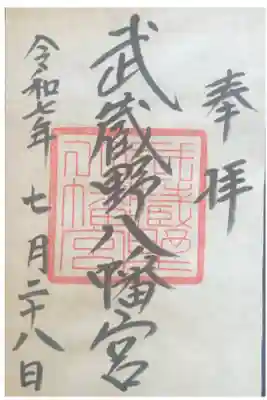 奉拝
武蔵野八幡宮
令和七年 七月二十八日
武蔵野八幡宮